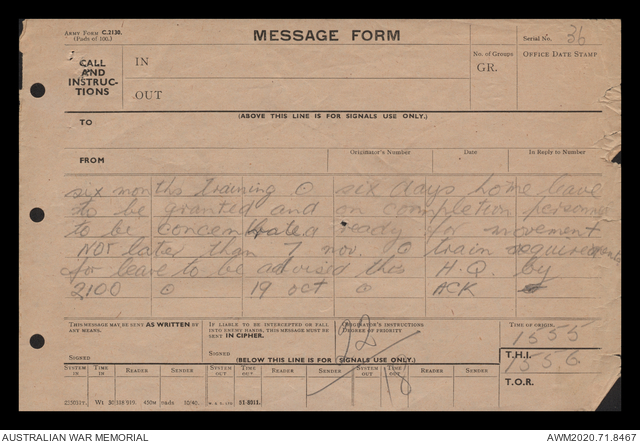 ARMY FORM C.2130.
(Pads of 100.)
MESSAGE FORM
Serial No. 36
CALL
AND
INSTRUC-
TIONS
IN
OUT
No. of Groups
GR.
OFFICE DATE STAMP
(ABOVE THIS LINE IS FOR SIGNALS USE ONLY.)
TO
FROM
Originator's Number
Date
In Reply to Number
six months training ⊙ six days home leave
to be granted and on completion personnel
to be concentrated ready for movement
NOT later than 7 nov. ⊙ train requirements
for leave to be advised this H.Q. by
2100 ⊙ 19 oct ⊙ ACK
THIS MESSAGE MAY BE SENT AS WRITTEN BY
ANY MEANS.
SIGNED
IF LIABLE TO BE INTERCEPTED OR FALL
INTO ENEMY HANDS, THIS MESSAGE MUST BE
SENT IN CIPHER.
SIGNED
ORIGINATOR'S INSTRUCTIONS
DEGREE OF PRIORITY
TIME OF ORIGIN
1555
T.H.I.
1556
T.O.R.
(BELOW THIS LINE IS FOR SIGNALS USE ONLY.)
SYSTEM IN
TIME IN
READER
SENDER
SYSTEM OUT
TIME OUT
READER
SENDER
SYSTEM OUT
TIME OUT
READER
SENDER
92/18
51-8911.
AUSTRALIAN WAR MEMORIAL
AWM2020.71.8467